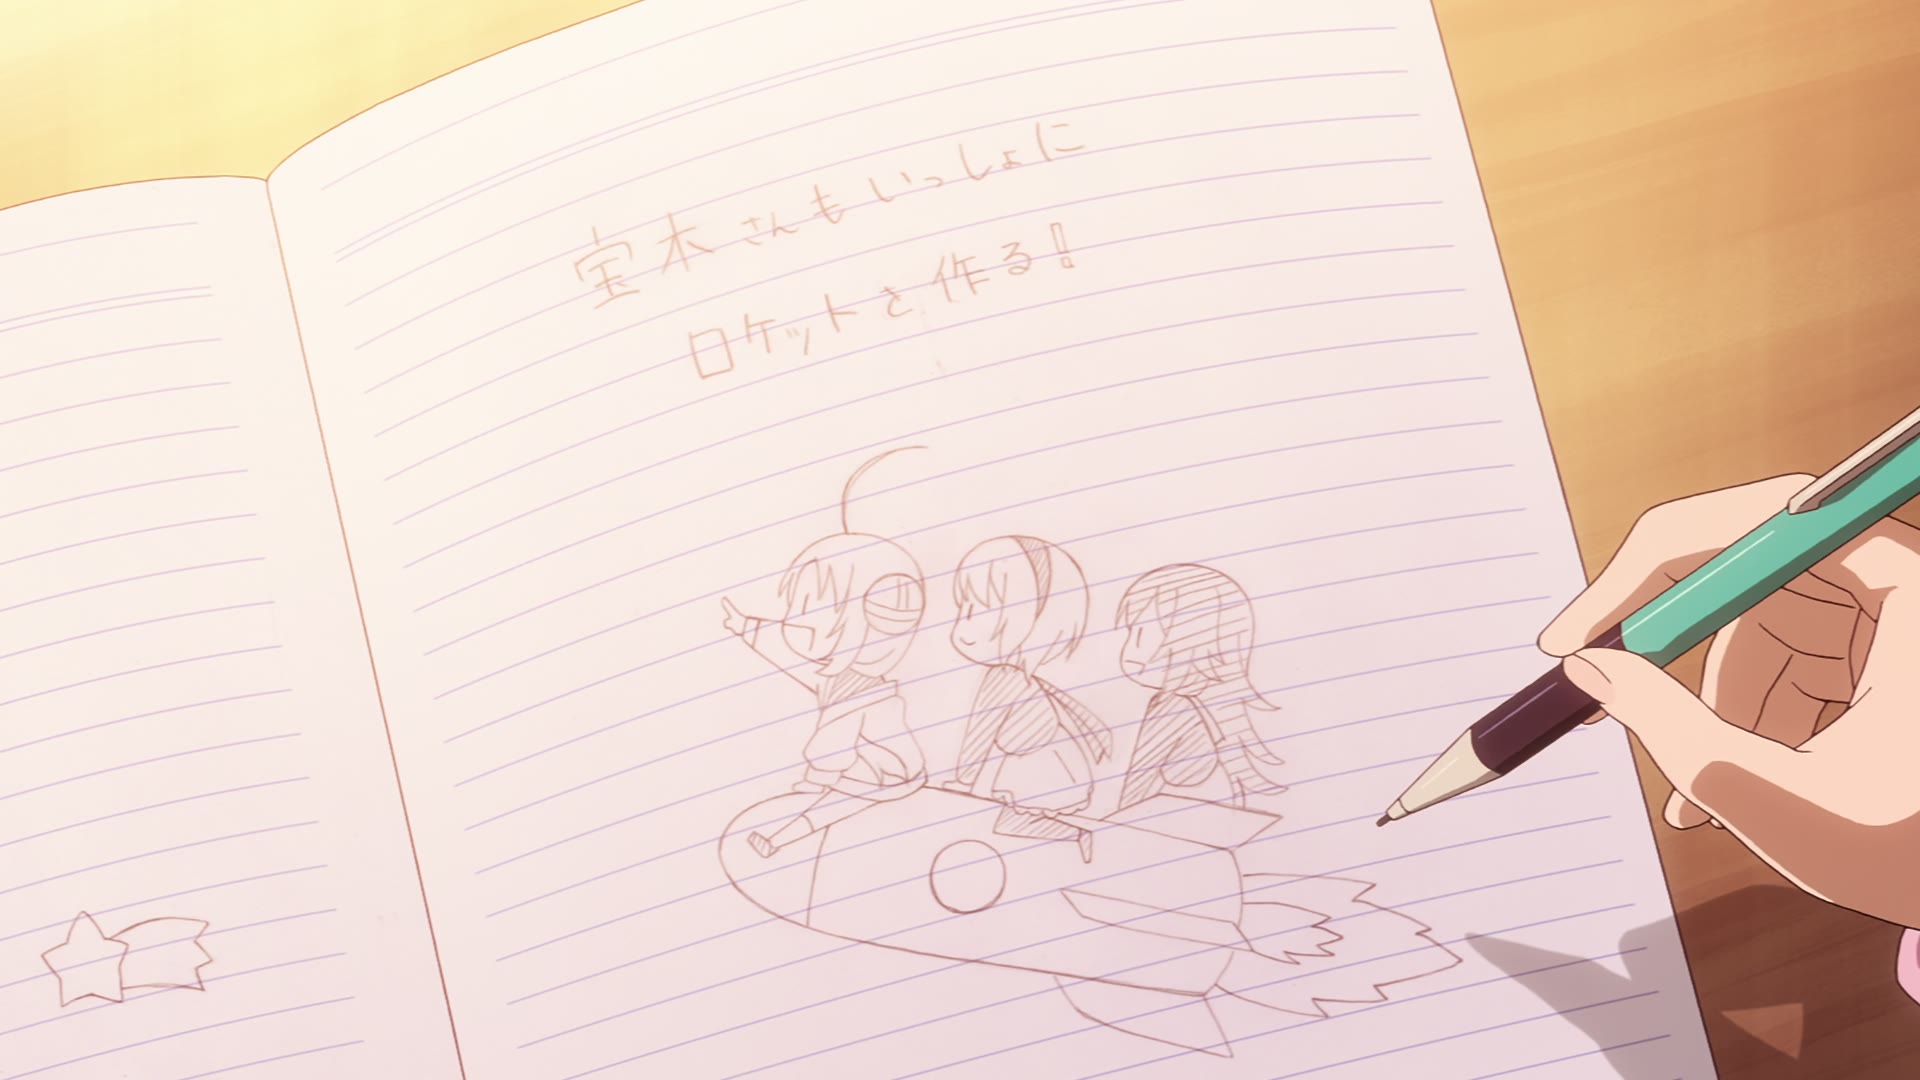 宝木さんもいっしょに
ロケットを作る!